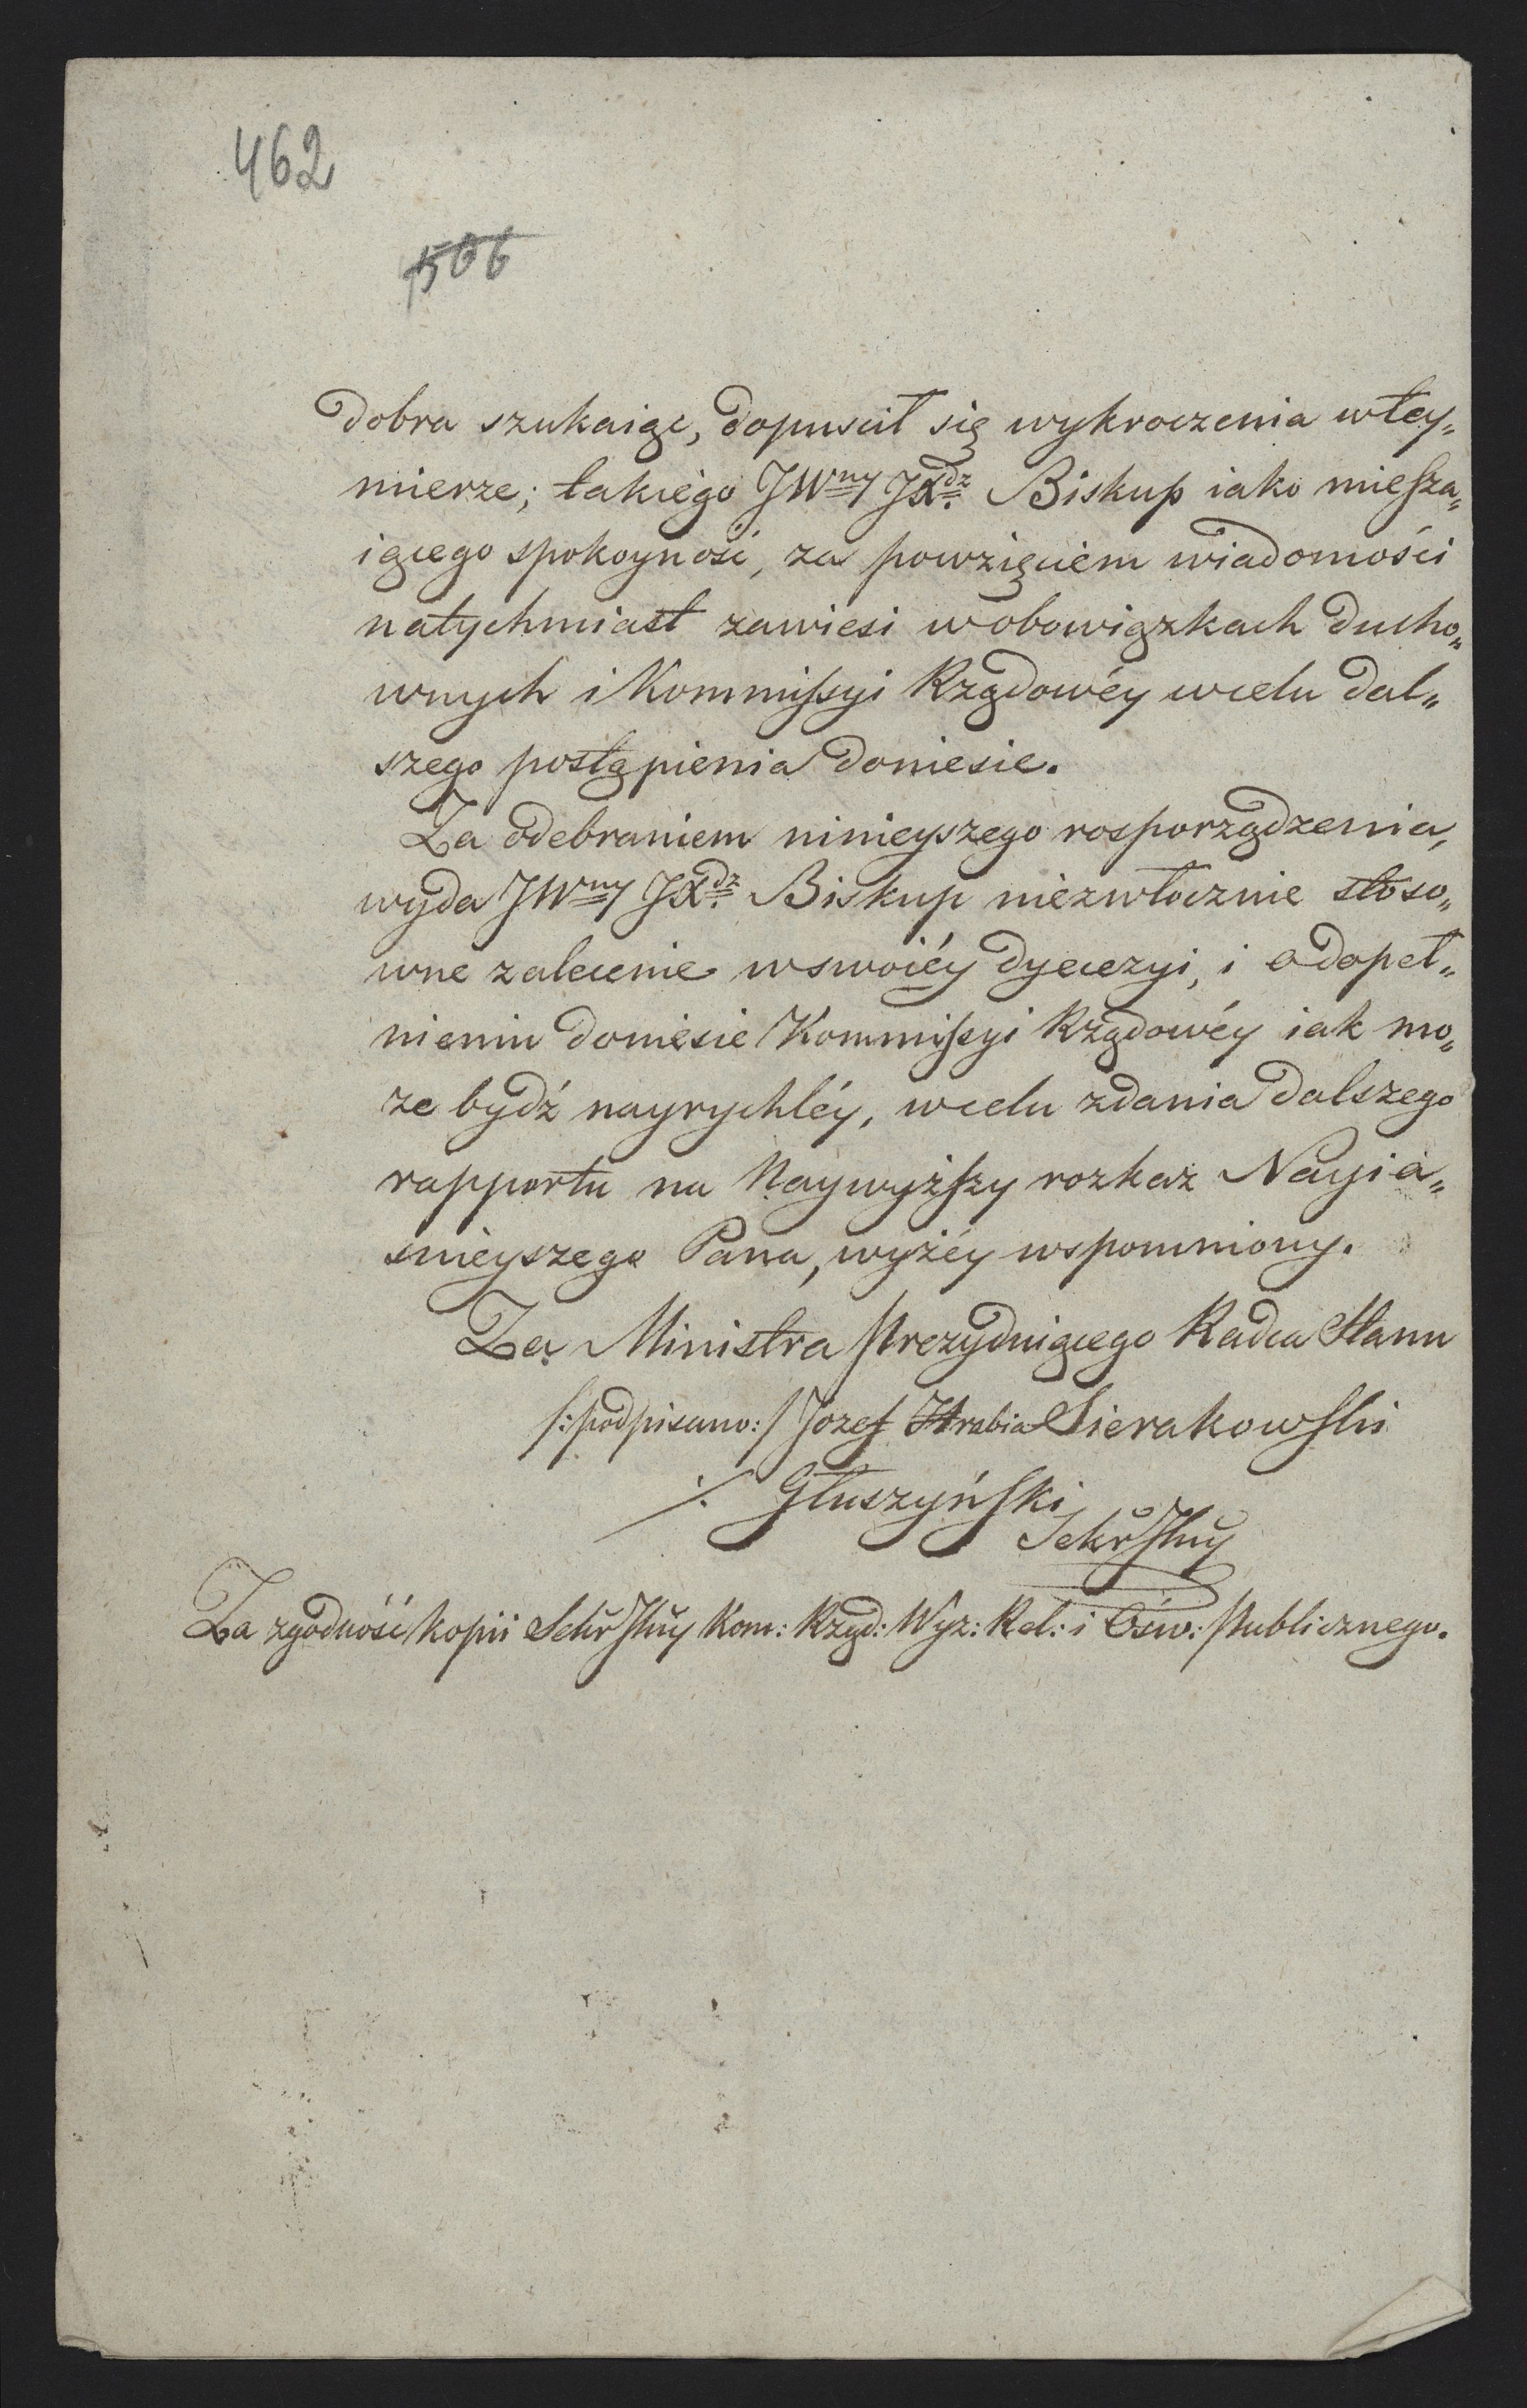 462
506
dobra szukaiąc, dopuscił się wykroczenia wtey„
mierze; takiego JWny JXdz. Biskup iako miesza„
iącego spokoyność, za powzięciem wiadomości
natychmiast zawiesi wobowiązkach ducho„
wnych i Kommissyi Rządowéy wcelu dal„
szego postąpienia doniesie.
Za odebraniem ninieyszego rosporządzenia,
wyda JWny JXdz. Biskup niezwłocznie stoso„
wne zalecenie wswoiéy dyecezyi, i odopeł„
nieniu doniesie Kommissyi Rządowéy iak mo„
ze bydź nayrychléy, wcelu zdania dalszego
rapportu na Naywyższy rozkaz Nayia„
snieyszego Pana, wyżéy wspomniony.
Za Ministra Prezyduiącego Radca Stanu
/:podpisano:/ Jozef Hrabia Sierakowski
/. Głuszyński
Sekr Jlny
Za zgodność kopii Sekr Jlny Kom: Rząd: Wyz: Rel: i Ośw: Publicznego.